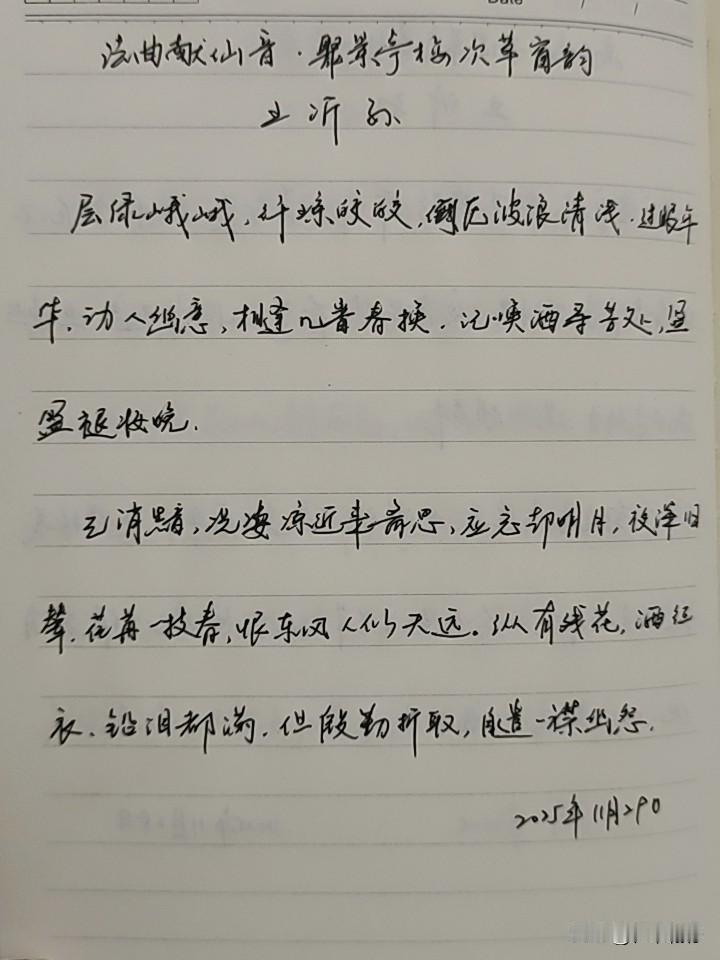 Date
法曲献仙音·聚景亭梅次草窗韵
王沂孙
层绿峨峨，纤琼皎皎，倒压波浪清浅。过眼年
华，动人幽意，相逢几番春换。记唤酒寻芳处，盈
盈褪妆晚。
已消黯，况凄凉近来离思，应忘却明月，夜深归
辇。荏苒一枝春，恨东风人似天远。纵有残花，洒征
衣，铅泪都满。但殷勤折取，自遣一襟幽怨。
2025年11月29日